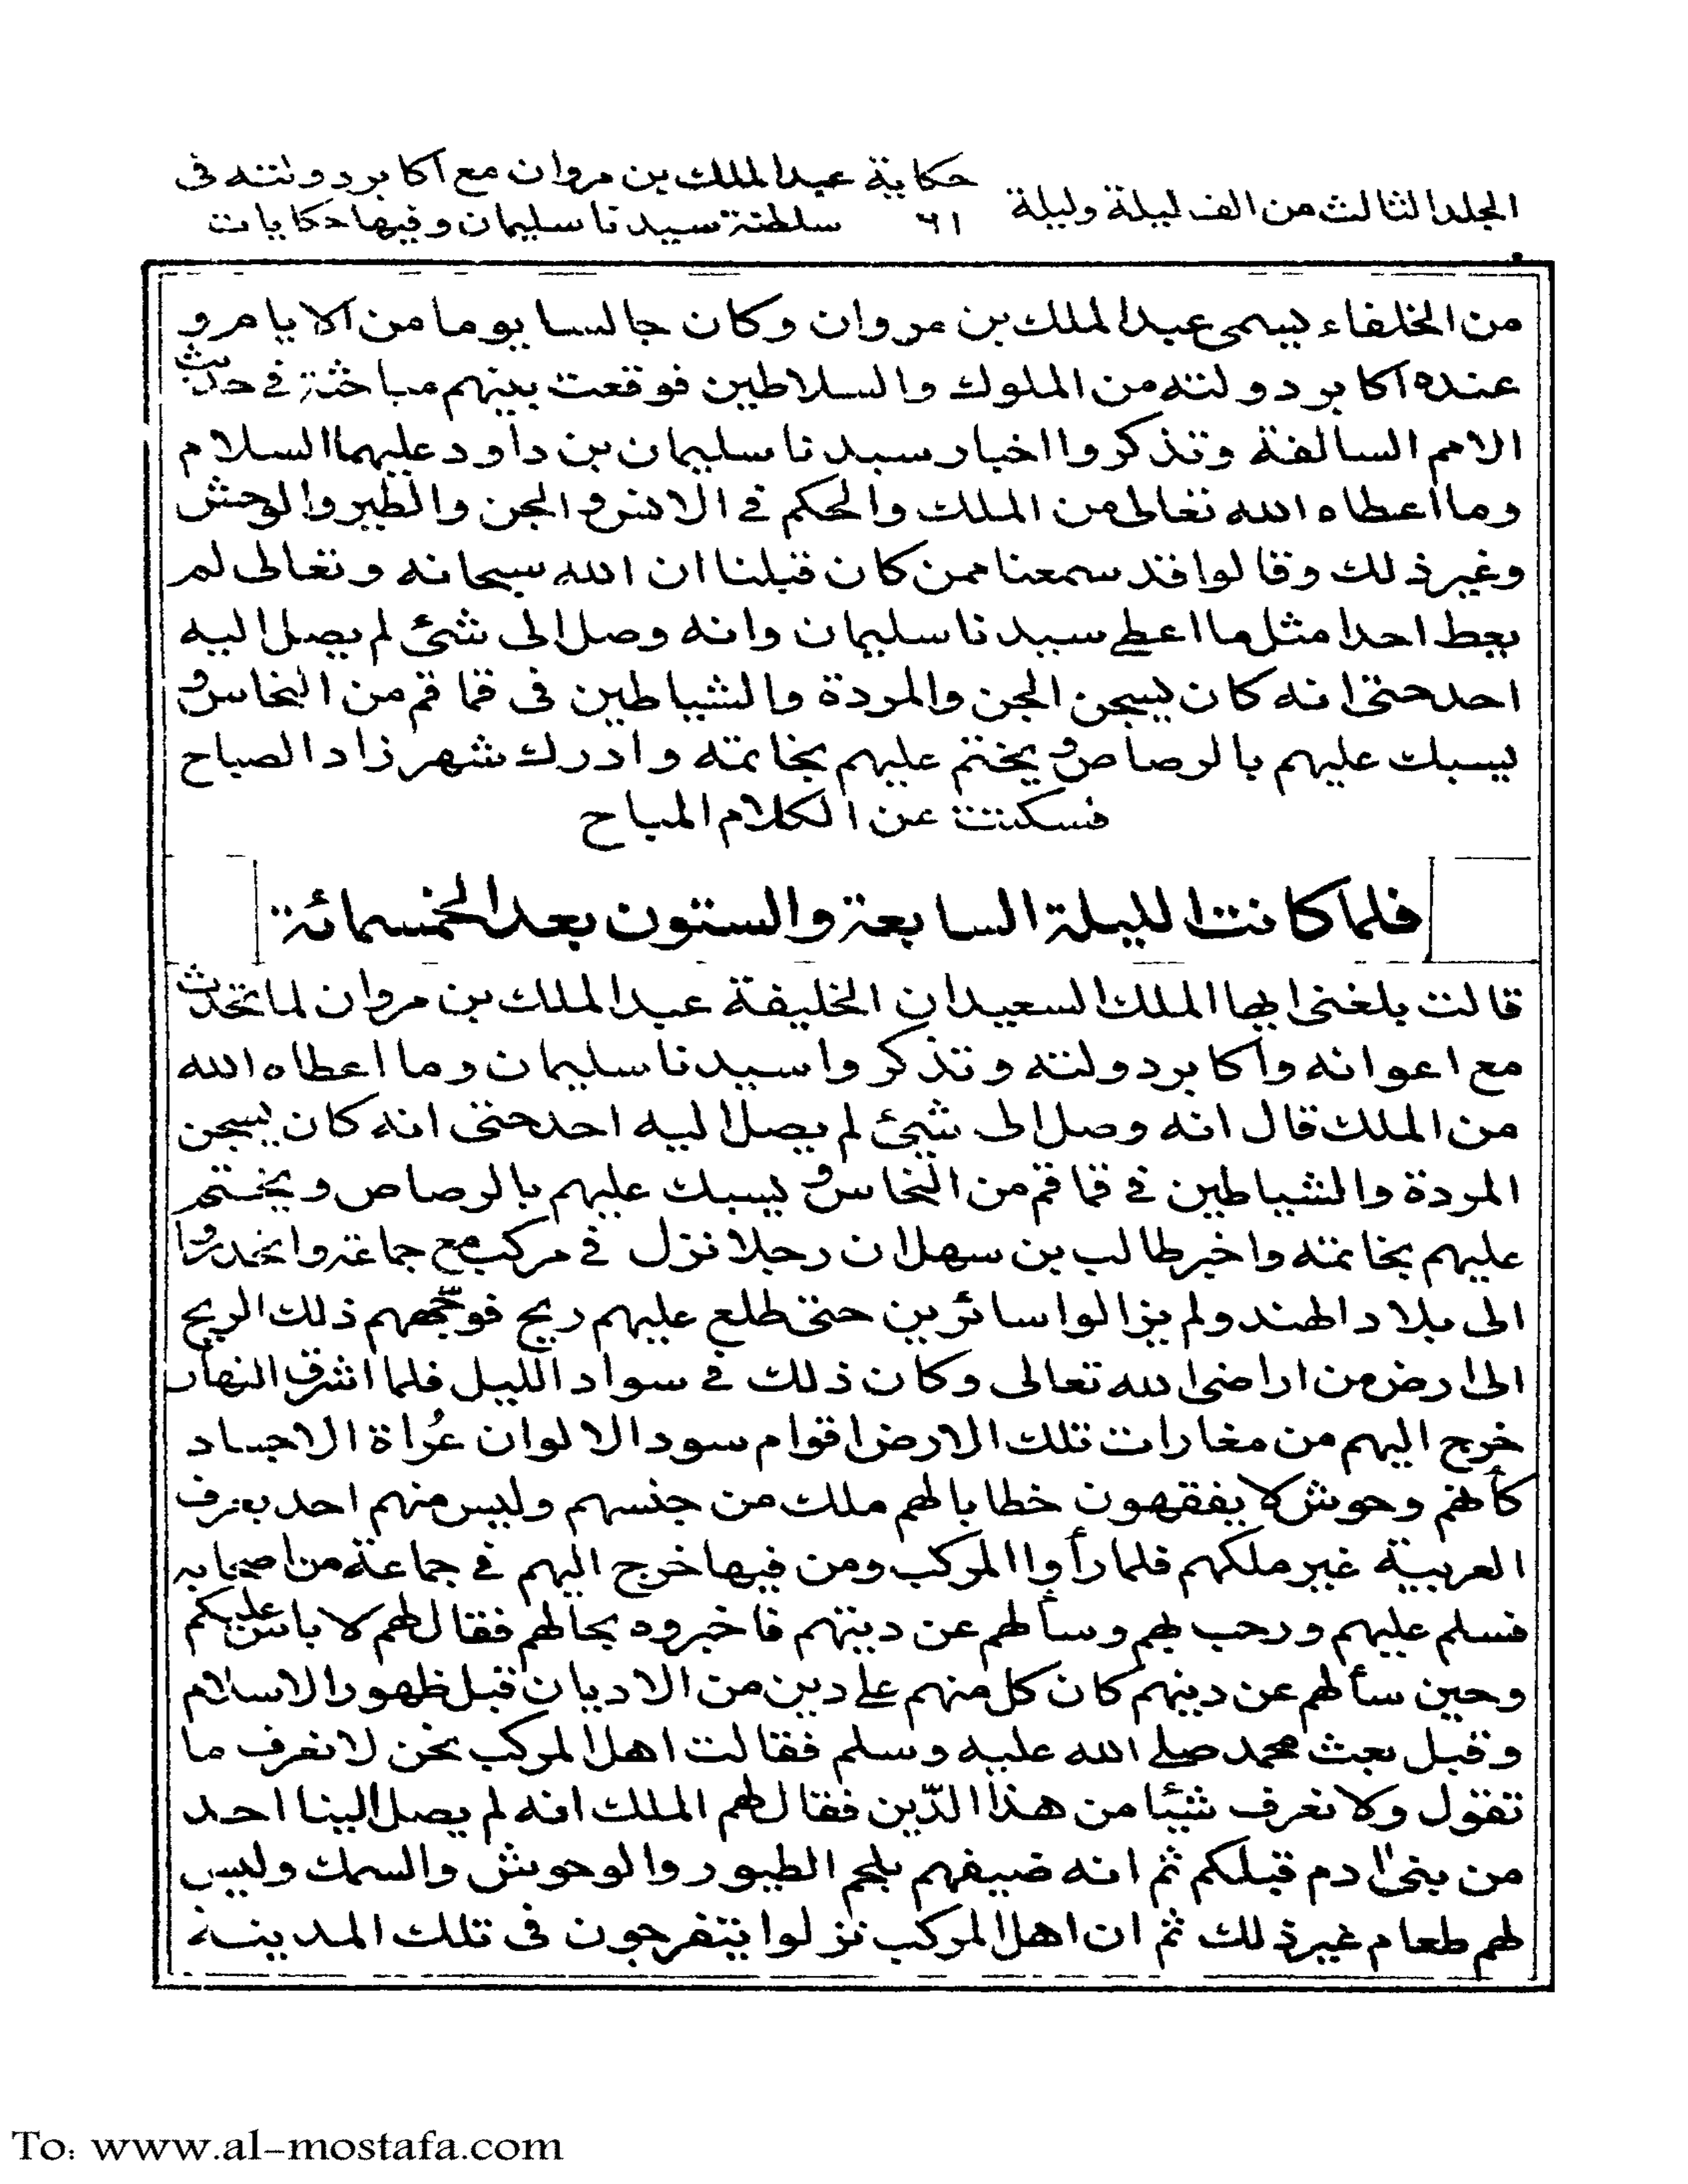 المجلد الثالث من الف ليلة وليلة
٦١
حكاية عبد الملك بن مروان مع آكابر دولته فى
سلطنة سيدنا سليمان وفيها حكايات
من الخلفاء يسمى عبد الملك بن مروان وكان جالسا يوما من الايام و
عنده آكابر دولته من الملوك والسلاطين فوقعت بينهم مباحثة في حديث
الامم السالفة وتذكروا اخبار سيدنا سليمان بن داود عليهما السلام
وما اعطاه الله تعالى من الملك والحكم في الانس والجن والطير والوحش
وغير ذلك وقالوا قد سمعنا ممن كان قبلنا ان الله سبحانه وتعالى لم
يعط احدا مثل ما اعطى سيدنا سليمان وانه وصل الى شئ لم يصل اليه
احد حتى انه كان يسجن الجن والمردة والشياطين فى قماقم من النحاس و
يسبك عليهم بالرصاص و يختم عليهم بخاتمه وادرك شهرزاد الصباح
فسكتت عن الكلام المباح
فلما كانت الليلة السابعة والستون بعد الخمسمائة
قالت بلغنى ايها الملك السعيد ان الخليفة عبد الملك بن مروان لما تحدث
مع اعوانه وآكابر دولته وتذكروا سيدنا سليمان وما اعطاه الله
من الملك قال انه وصل الى شيئ لم يصل اليه احد حتى انه كان يسجن
المردة والشياطين في قماقم من النحاس و يسبك عليهم بالرصاص ويختم
عليهم بخاتمه واخبر طالب بن سهل ان رجلا نزل في مركب مع جماعة وانحدروا
الى بلاد الهند ولم يزالوا سائرين حتى طلع عليهم ريح فوجّههم ذلك الريح
الى ارض من اراضى الله تعالى وكان ذلك في سواد الليل فلما اشرق النهار
خرج اليهم من مغارات تلك الارض اقوام سود الالوان عُراة الاجساد
كأنهم وحوش لا يفقهون خطابا لهم ملك من جنسهم وليس منهم احد يعرف
العربية غير ملكهم فلما رأوا المركب ومن فيها خرج اليهم في جماعة من اصحابه
فسلم عليهم ورحب بهم وسألهم عن دينهم فاخبروه بحالهم فقال لهم لا باس عليكم
وحين سألهم عن دينهم كان كل منهم على دين من الاديان قبل ظهور الاسلام
وقبل بعث محمد صلى الله عليه وسلم فقالت اهل المركب نحن لا نعرف ما
تقول ولا نعرف شيئا من هذا الدّين فقال لهم الملك انه لم يصل الينا احد
من بنى اٰدم قبلكم ثم انه ضيفهم بلحم الطيور والوحوش والسمك وليس
لهم طعام غير ذلك ثم ان اهل المركب نزلوا يتفرجون فى تلك المدينة
To: www.al-mostafa.com